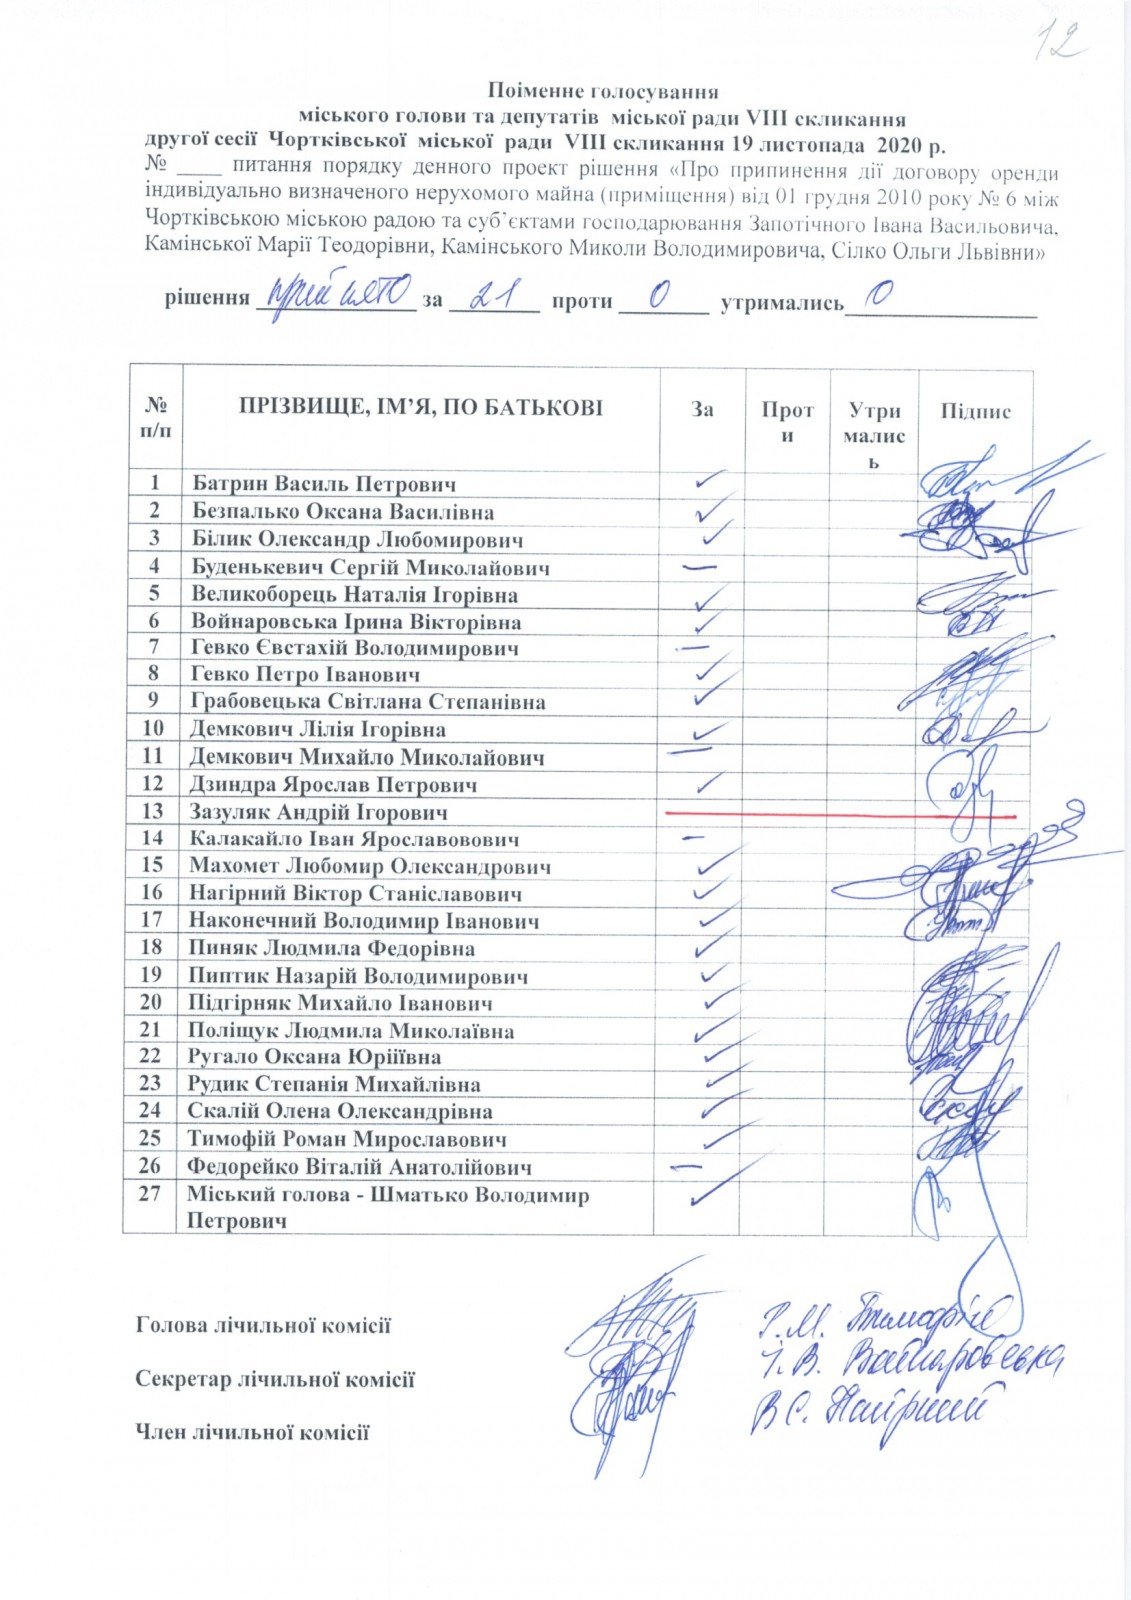 12
Поіменне голосування
міського голови та депутатів міської ради VIII скликання
другої сесії Чортківської міської ради VIII скликання 19 листопада 2020 р.
№ ____ питання порядку денного проект рішення «Про припинення дії договору оренди
індивідуально визначеного нерухомого майна (приміщення) від 01 грудня 2010 року № 6 між
Чортківською міською радою та суб’єктами господарювання Запотічного Івана Васильовича,
Камінської Марії Теодорівни, Камінського Миколи Володимировича, Сілко Ольги Львівни»
рішення прийнято за 21 проти 0 утримались 0
№ п/п ПРІЗВИЩЕ, ІМ’Я, ПО БАТЬКОВІ За Проти Утримались Підпис
1 Батрин Василь Петрович ✓
2 Безпалько Оксана Василівна ✓
3 Білик Олександр Любомирович ✓
4 Буденькевич Сергій Миколайович —
5 Великоборець Наталія Ігорівна ✓
6 Войнаровська Ірина Вікторівна ✓
7 Гевко Євстахій Володимирович —
8 Гевко Петро Іванович ✓
9 Грабовецька Світлана Степанівна ✓
10 Демкович Лілія Ігорівна ✓
11 Демкович Михайло Миколайович —
12 Дзиндра Ярослав Петрович ✓
13 Зазуляк Андрій Ігорович
14 Калакайло Іван Ярославовович —
15 Махомет Любомир Олександрович ✓
16 Нагірний Віктор Станіславович ✓
17 Наконечний Володимир Іванович ✓
18 Пиняк Людмила Федорівна ✓
19 Пиптик Назарій Володимирович ✓
20 Підгірняк Михайло Іванович ✓
21 Поліщук Людмила Миколаївна ✓
22 Ругало Оксана Юрііївна ✓
23 Рудик Степанія Михайлівна ✓
24 Скалій Олена Олександрівна ✓
25 Тимофій Роман Мирославович ✓
26 Федорейко Віталій Анатолійович —
27 Міський голова - Шматько Володимир
Петрович ✓
Голова лічильної комісії Р.М. Тимофій
Секретар лічильної комісії І.В. Войнаровська
Член лічильної комісії В.С. Нагірний